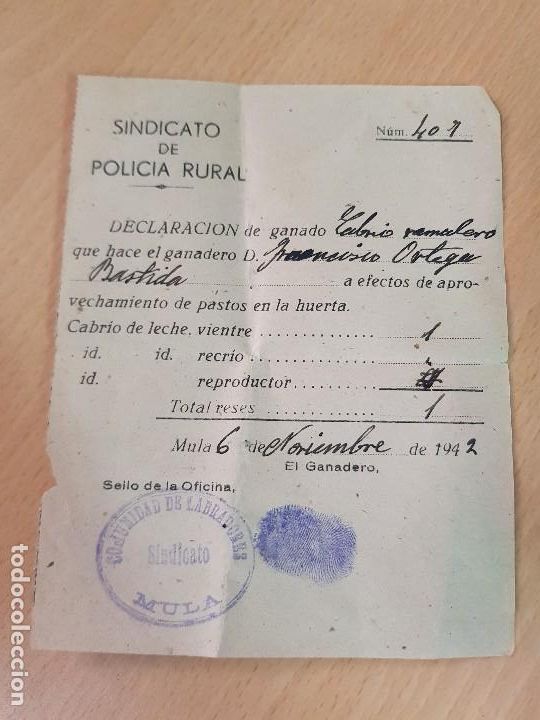 SINDICATO
DE
POLICIA RURAL
Núm. 401
DECLARACION de ganado Cabrio ramalero
que hace el ganadero D. Francisco Ortega
Bastida a efectos de apro-
vechamiento de pastos en la huerta.
Cabrio de leche, vientre 1
id. id. recrío "
id. reproductor
Total reses 1
Mula 6 de Noviembre de 1942
El Ganadero,
Sello de la Oficina,
COMUNIDAD DE LABRADORES
Sindicato
MULA
todocoleccion